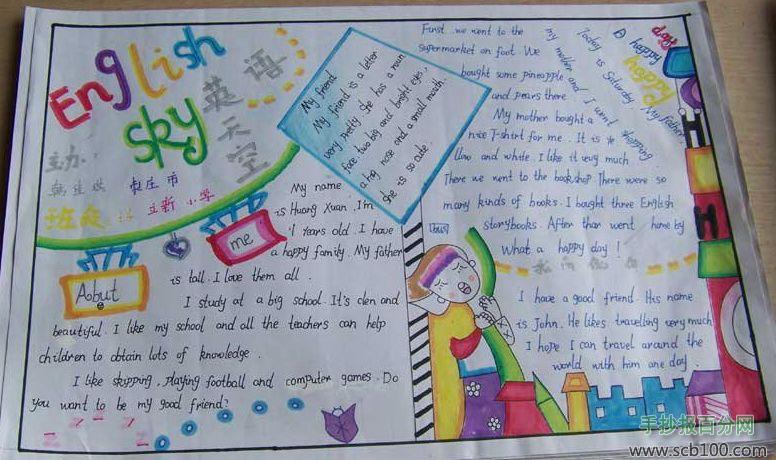 English
sky
英语
天空
主办:
枣庄市
立新小学
Aobut
me
My friend
My friend is a letter
very pretty she has a roun
face two big and bright eyes,
a big nose and a small mouth.
She is so cute!
My name
is Huang Xuan. I'm
11 years old. I have
a happy family. My father
is tall. I love them all.
I study at a big school. It's clen and
beautiful. I like my school and all the teachers can help
children to obtain lots of knowledge.
I like skipping, playing football and computer games. Do
you want to be my good friend?
A happy day
happy
Today is Saturday. My father,
my mother and I went shopping
First we went to the
supermarket on foot. We
bought some pineapple
and pears there
My mother bought a
nice T-shirt for me. It is
llow and white. I like it very much
There we went to the bookshop. There were so
many kinds of books. I bought three English
storybooks. After than went home by
(bus)
What a happy day!
I have a good friend. His name
is John. He likes travelling very much
I hope I can travel around the
world with him one day.
H
H
手抄报百分网
www.scb100.com